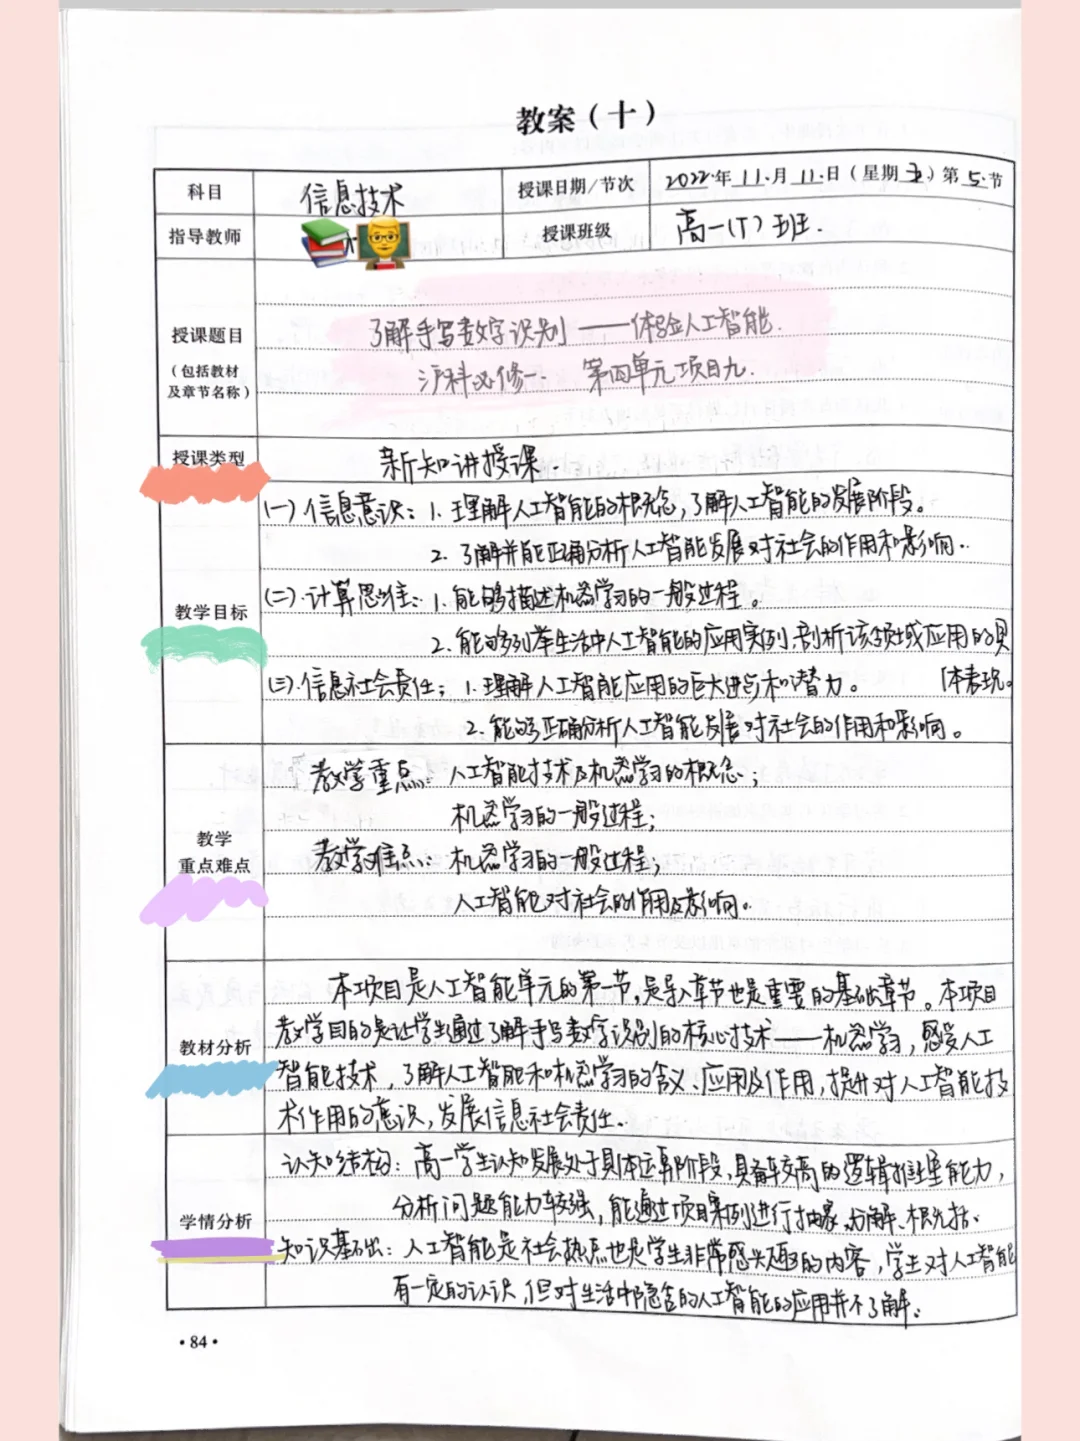 教案（十）
科目 信息技术 授课日期/节次 2022年11月11日（星期五）第5节
指导教师 授课班级 高一(1)班.
授课题目
（包括教材
及章节名称）
了解手写数字识别——体验人工智能.
沪科必修一. 第四单元项目九.
授课类型 新知讲授课.
教学目标
(一)信息意识：1.理解人工智能的概念，了解人工智能的发展阶段。
2.了解并能正确分析人工智能发展对社会的作用和影响.
(二)计算思维：1.能够描述机器学习的一般过程。
2.能够列举生活中人工智能的应用实例,剖析该领域应用的具
(三)信息社会责任：1.理解人工智能应用的巨大进步和潜力。 体表现。
2.能够正确分析人工智能发展对社会的作用和影响。
教学
重点难点
教学重点：人工智能技术及机器学习的概念；
机器学习的一般过程；
教学难点：机器学习的一般过程；
人工智能对社会的作用及影响。
教材分析
本项目是人工智能单元的第一节,是导入章节也是重要的基础章节。本项目
教学目的是让学生通过了解手写数字识别的核心技术——机器学习，感受人工
智能技术，了解人工智能和机器学习的含义、应用及作用，提升对人工智能技
术作用的意识，发展信息社会责任.
学情分析
认知结构：高一学生认知发展处于具体运算阶段，具备较高的逻辑推理能力，
分析问题能力较强，能通过项目案例进行抽象、分解、概括.
知识基础：人工智能是社会热点也是学生非常感兴趣的内容，学生对人工智能
有一定的认识，但对生活中隐含的人工智能的应用并不了解.
·84·